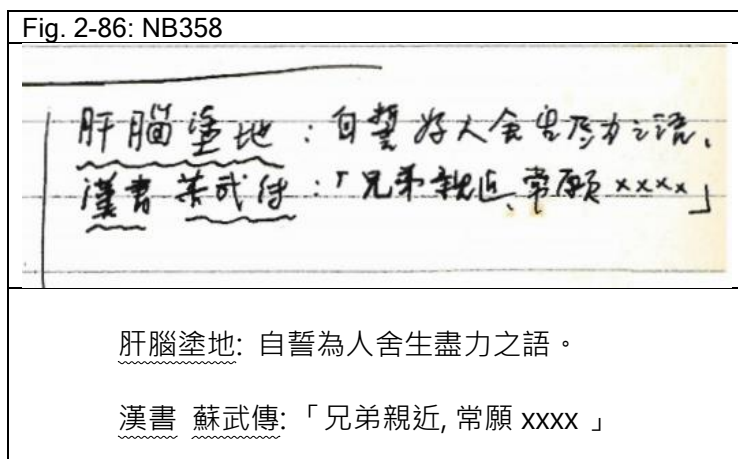 Fig. 2-86: NB358
肝腦塗地：自誓為人舍生尽力之語.
漢書 苏武传：「兄弟親近, 常願 xxxx」
肝腦塗地: 自誓為人舍生盡力之語。
漢書 蘇武傳:「兄弟親近, 常願 xxxx 」